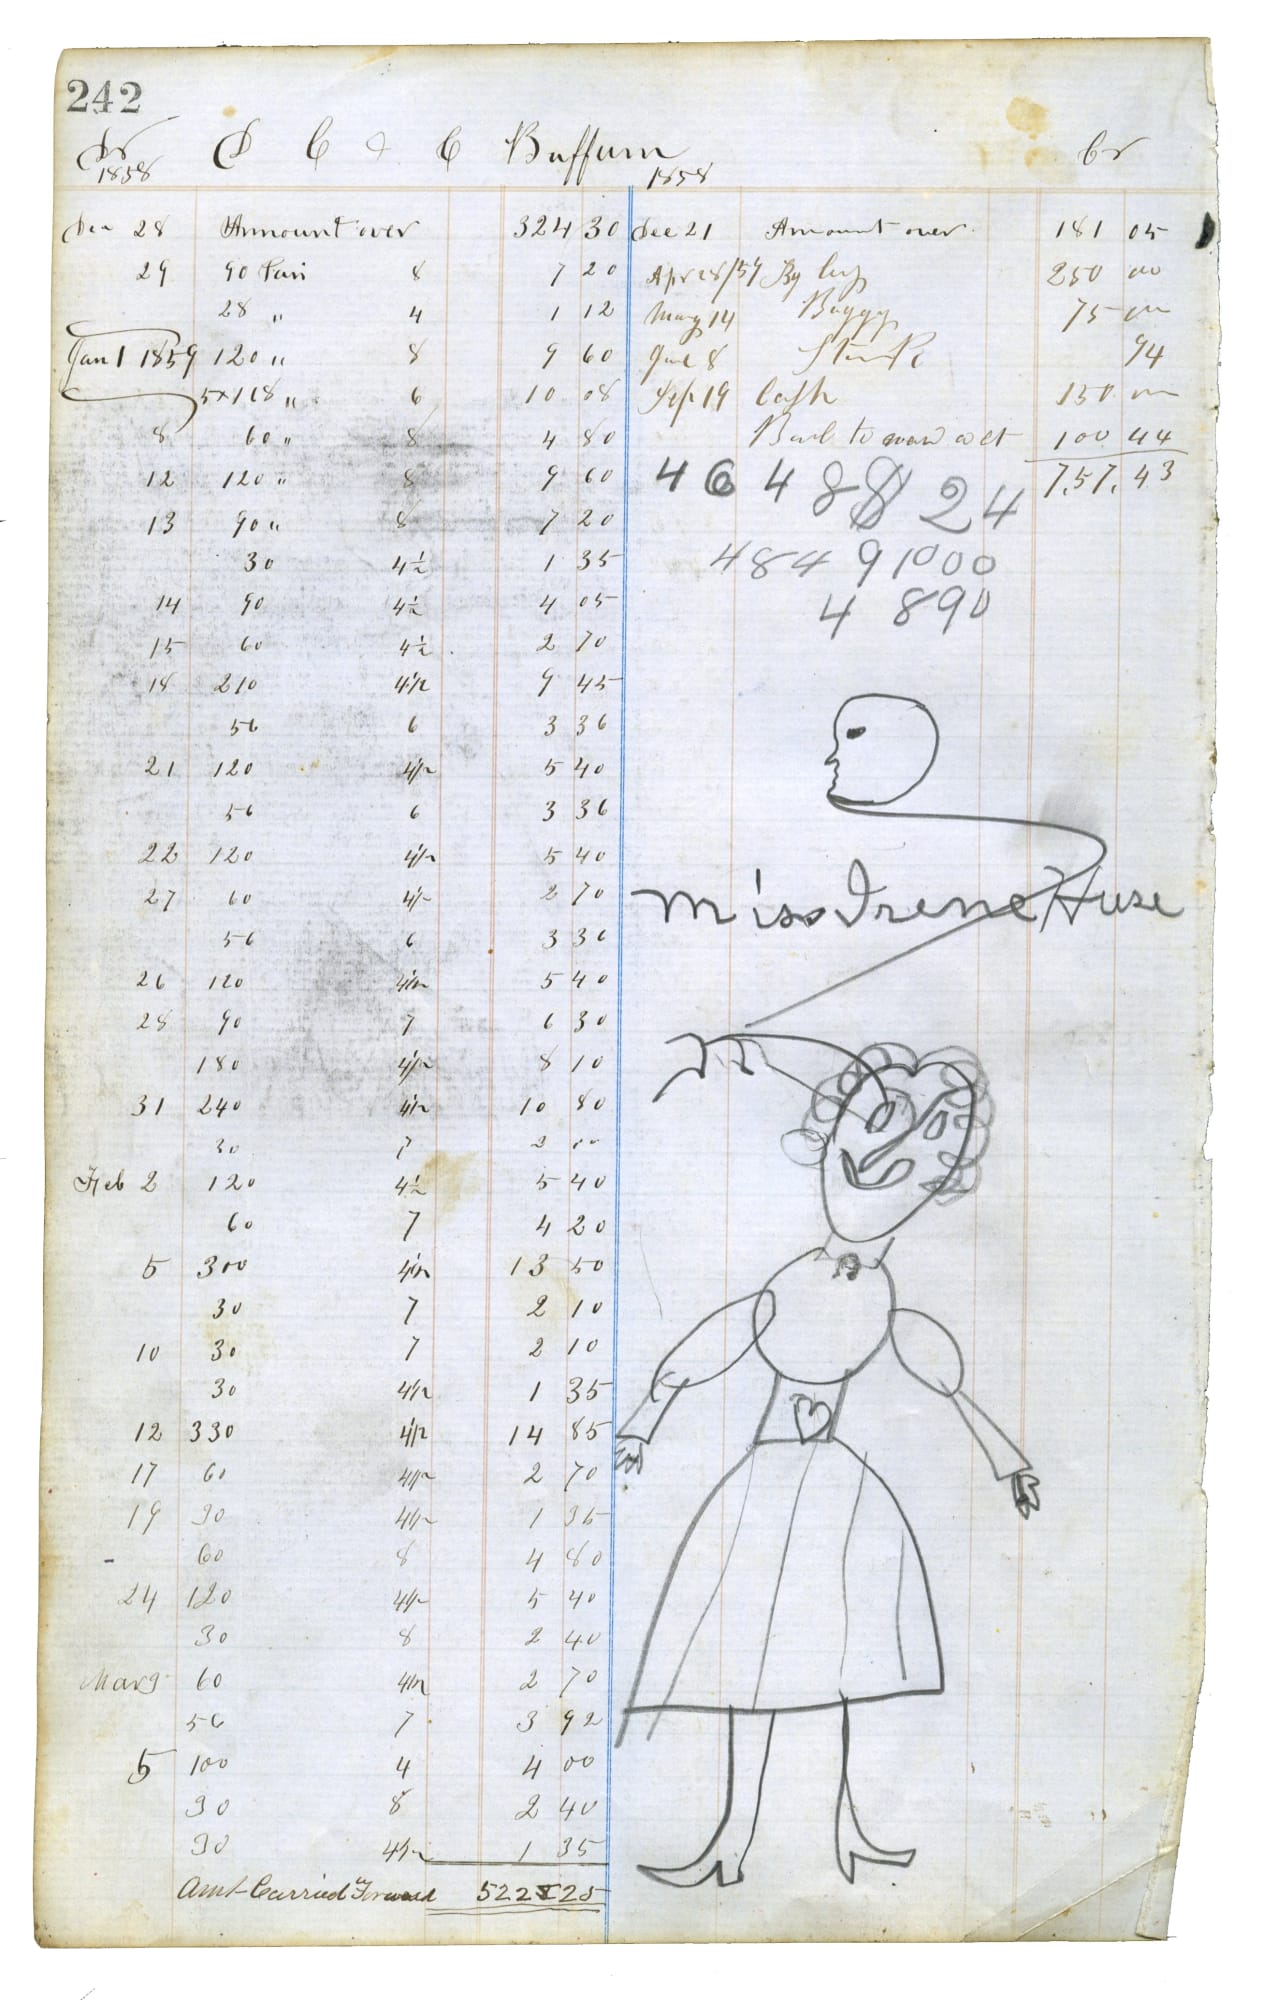 242
Dr D C & C Buffum Cr
1858 1858
Dec 28 Amount over 324 30
29 90 Pair 8 7 20
28 " 4 1 12
Jan 1 1859 120 " 8 9 60
5x118 " 6 10 08
8 60 " 8 4 80
12 120 " 8 9 60
13 90 " 8 7 20
30 4½ 1 35
14 90 4½ 4 05
15 60 4½ 2 70
18 210 4½ 9 45
56 6 3 36
21 120 4½ 5 40
56 6 3 36
22 120 4½ 5 40
27 60 4½ 2 70
56 6 3 36
26 120 4½ 5 40
28 90 7 6 30
180 4½ 8 10
31 240 4½ 10 80
30 7 2 00
Feb 2 120 4½ 5 40
60 7 4 20
5 300 4½ 13 50
30 7 2 10
10 30 7 2 10
30 4½ 1 35
12 330 4½ 14 85
17 60 4½ 2 70
19 30 4½ 1 35
60 8 4 80
24 120 4½ 5 40
30 8 2 40
Mar 3 60 4½ 2 70
56 7 3 92
5 100 4 4 00
30 8 2 40
30 4½ 1 35
Amt Carried Forward 522 25
Dec 21 Amount over 181 05
Apr 28/59 By 250 00
May 14 Buggy 75 00
June 8 94
Sep 19 Cash 150 00
Barl to 100 44
757.43
4 6 4 8 8 2 4
48491000
4 890
Miss Irene Huse